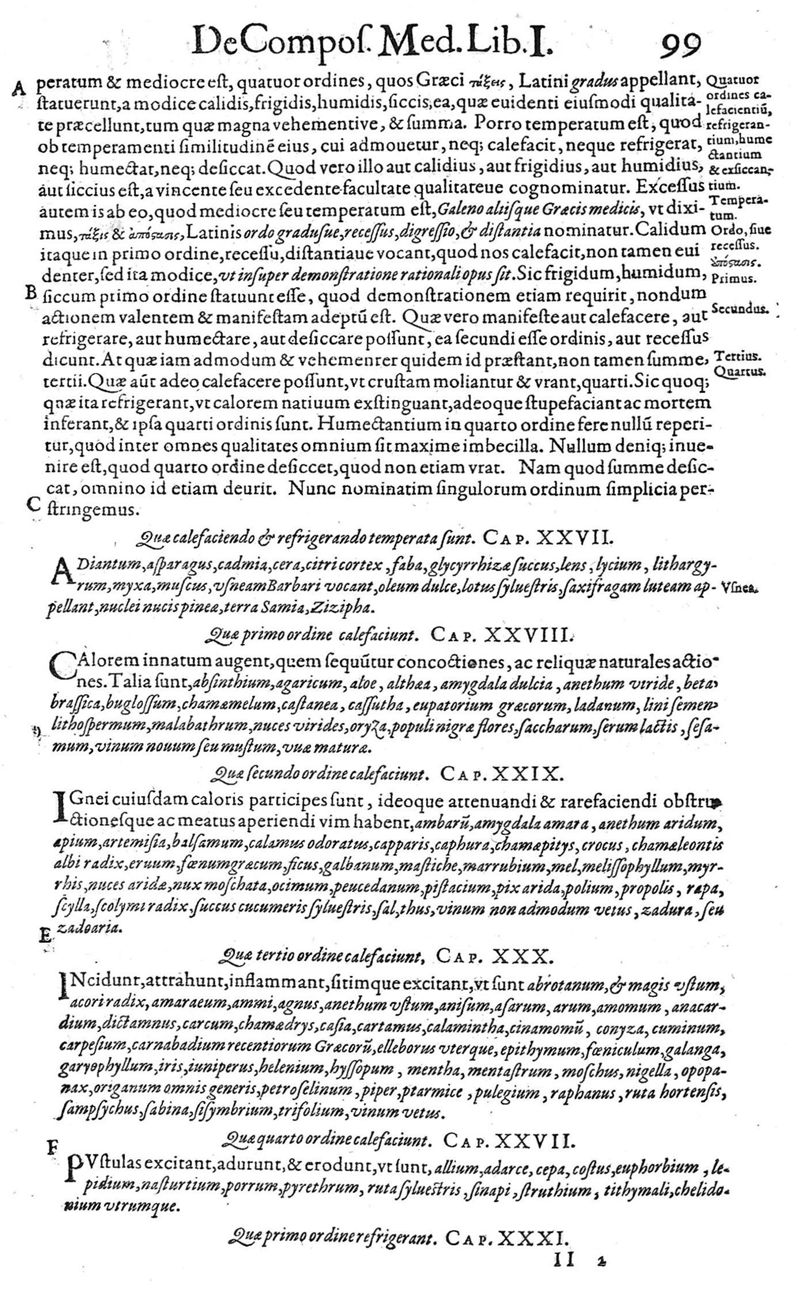 De Compoſ. Med. Lib. I. 99
A peratum & mediocre eſt, quatuor ordines, quos Græci τάξεις, Latini gradus appellant, Quatuor
ſtatuerunt, a modice calidis, frigidis, humidis, ſiccis, ea, quæ euidenti eiuſmodi qualita- ordines ca-
te præcellunt, tum quæ magna vehementive, & ſumma. Porro temperatum eſt, quod lefacientiũ, refrigeran-
ob temperamenti ſimilitudinẽ eius, cui admouetur, neq; calefacit, neque refrigerat, tium, hume
neq; humectat, neq; deſiccat. Quod vero illo aut calidius, aut frigidius, aut humidius, ctantium & exſiccan-
aut ſiccius eſt, a vincente ſeu excedente facultate qualitateue cognominatur. Exceſſus tium.
autem is ab eo, quod mediocre ſeu temperatum eſt, Galeno aliiſque Græcis medicis, vt dixi- Tempera-tum.
mus, τάξις & ἀπόστασις, Latinis ordo graduſue, receſſus, digreſſio, & diſtantia nominatur. Calidum Ordo, ſiue
itaque in primo ordine, receſſu, diſtantiaue vocant, quod nos calefacit, non tamen eui receſſus. ἀπόστασις.
denter, ſed ita modice, vt inſuper demonſtratione rationali opus ſit. Sic frigidum, humidum, Primus.
B ſiccum primo ordine ſtatuunt eſſe, quod demonſtrationem etiam requirit, nondum
actionem valentem & manifeſtam adeptũ eſt. Quæ vero manifeſte aut calefacere, aut Secundus.
refrigerare, aut humectare, aut deſiccare poſſunt, ea ſecundi eſſe ordinis, aut receſſus
dicunt. At quæ iam admodum & vehemenrer quidem id præſtant, non tamen ſumme, Tertius.
tertii. Quæ aũt adeo calefacere poſſunt, vt cruſtam moliantur & vrant, quarti. Sic quoq; Quartus.
quæ ita refrigerant, vt calorem natiuum exſtinguant, adeoque ſtupefaciant ac mortem
inferant, & ipſa quarti ordinis ſunt. Humectantium in quarto ordine fere nullũ reperi-
tur, quod inter omnes qualitates omnium ſit maxime imbecilla. Nullum deniq; inue-
nire eſt, quod quarto ordine deſiccet, quod non etiam vrat. Nam quod ſumme deſic-
cat, omnino id etiam deurit. Nunc nominatim ſingulorum ordinum ſimplicia per-
C ſtringemus.
Quæ calefaciendo & refrigerando temperata ſunt. CAP. XXVII.
ADiantum, aſparagus, cadmia, cera, citri cortex, faba, glycyrrhizæ ſuccus, lens, lycium, lithargy-
rum, myxa, muſcus, vſneam Barbari vocant, oleum dulce, lotus ſylueſtris, ſaxifragam luteam ap- Vſnea.
pellant, nuclei nucis pineæ, terra Samia, Zizipha.
Quæ primo ordine calefaciunt. CAP. XXVIII.
CAlorem innatum augent, quem ſequũtur concoctiones, ac reliquæ naturales actio-
nes. Talia ſunt, abſinthium, agaricum, aloe, althæa, amygdala dulcia, anethum viride, beta,
braſſica, bugloſſum, chamæmelum, caſtanea, caſſutha, eupatorium græcorum, ladanum, lini ſemen,
D lithoſpermum, malabathrum, nuces virides, oryza, populi nigræ flores, ſaccharum, ſerum lactis, ſeſa-
mum, vinum nouum ſeu muſtum, vuæ maturæ.
Quæ ſecundo ordine calefaciunt. CAP. XXIX.
IGnei cuiuſdam caloris participes ſunt, ideoque attenuandi & rarefaciendi obſtru-
ctioneſque ac meatus aperiendi vim habent, ambarũ, amygdala amara, anethum aridum,
apium, artemiſia, balſamum, calamus odoratus, capparis, caphura, chamæpitys, crocus, chamæleontis
albi radix, eruum, fœnumgræcum, ficus, galbanum, maſtiche, marrubium, mel, meliſſophyllum, myr-
rhis, nuces aridæ, nux moſchata, ocimum, peucedanum, piſtacium, pix arida, polium, propolis, rapa,
ſcylla, ſcolymi radix, ſuccus cucumeris ſylueſtris, ſal, thus, vinum non admodum vetus, zadura, ſeu
E zadoaria.
Quæ tertio ordine calefaciunt, CAP. XXX.
INcidunt, attrahunt, inflammant, ſitimque excitant, vt ſunt abrotanum, & magis vſtum,
acori radix, amaraeum, ammi, agnus, anethum vſtum, aniſum, aſarum, arum, amomum, anacar-
dium, dictamnus, carcum, chamædrys, caſia, cartamus, calamintha, cinamomũ, conyza, cuminum,
carpeſium, carnabadium recentiorum Græcorũ, elleborus vterque, epithymum, fœniculum, galanga,
garyophyllum, iris, iuniperus, helenium, hyſſopum, mentha, mentaſtrum, moſchus, nigella, opopa-
nax, origanum omnis generis, petroſelinum, piper, ptarmice, pulegium, raphanus, ruta hortenſis,
ſampſychus, ſabina, ſiſymbrium, trifolium, vinum vetus.
Quæ quarto ordine calefaciunt. CAP. XXVII.
F PVſtulas excitant, adurunt, & erodunt, vt ſunt, allium, adarce, cepa, coſtus, euphorbium, le-
pidium, naſturtium, porrum, pyrethrum, ruta ſylueſtris, ſinapi, ſtruthium, tithymali, chelido-
nium vtrumque.
Quæ primo ordine refrigerant. CAP. XXXI.
II 2